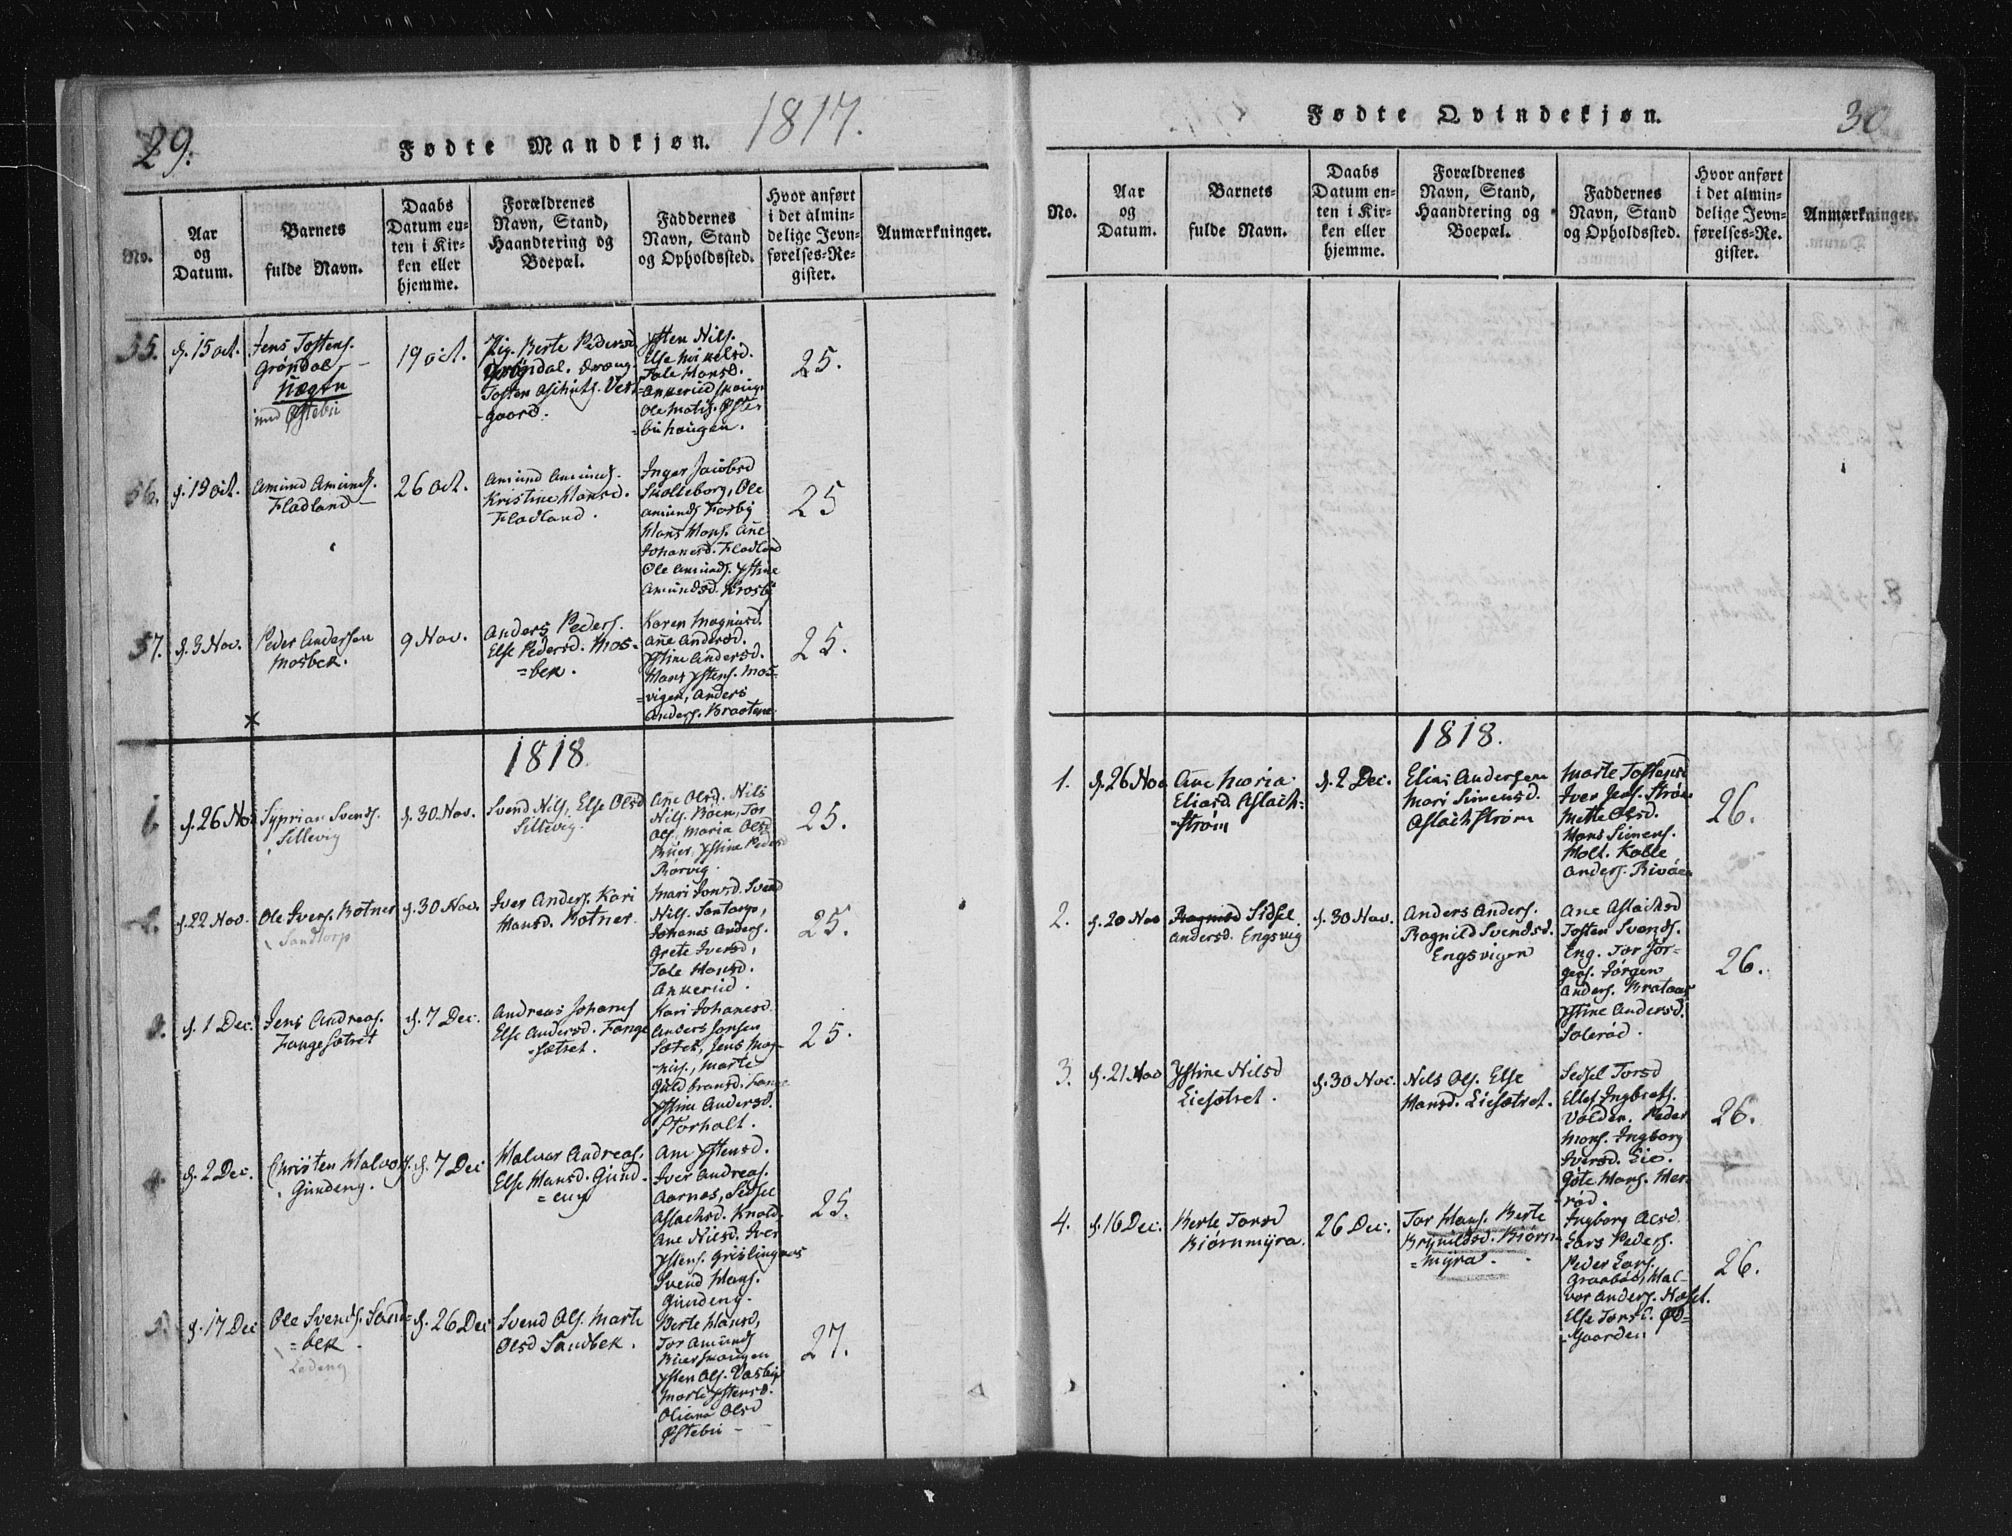 29.
Fødte Mandkjøn. 1817.
No.
Aar
og
Datum.
Barnets
fulde Navn.
Daabs
Datum en-
ten i Kir-
ken eller
hjemme.
Forældrenes
Navn, Stand,
Haandtering og
Boepæl.
Faddernes
Navn, Stand
og Opholdssted.
Hvor anført
i det almin-
delige Jevn-
førelses-Re-
gister.
Anmærkninger.
55.
d. 15 oct.
Jens Tostens.
Grøndal
Uægte
ind Østebü
19 oct.
Pig. Berte Pedersd
Grøndal. Dreng
Tosten Aschuts. Vest
-gaard.
Ysten Nils.
Else Mikelsd.
Tale Hansd.
Ankerüd
Ole Matis. Øste
=bühaugen.
25.
56.
d. 19 oct.
Amünd Amünds.
Fladland
26 oct.
Amünd Amünds.
Kristine Hansd.
Fladland.
Inger Jacobsd
Skolleborg, Ole
Amünds Foosby
Hans Hans. Ane
Johanesd. Fladland
Ole Amünds. Ystine
Amündsd. Krosby
25
57.
d. 3 Nov.
Peder Andersen
Mosbek.
9 Nov.
Anders Peders.
Else Pedersd. Mos-
=bek.
Karen Magnusd.
Ane Andersd.
Ystine Andersd.
Hans Ystens. Mos-
=vigen, Anders
Anders. Braatene
25.
1818
d. 26 Nov
Syprian Svends.
Sillevig
d. 30 Nov.
Svend Nils. Else Olsd
Sillevig.
Ane Olsd. Nils
Nils. Boen, Tor
Ols. Maria Olsd
Büer, Ystine Pedersd
Rørvig.
25.
2.
d. 22 Nov.
Ole Ivers. Botner
Sandtorp
d. 30 Nov.
Iver Anders. Kari
Hansd. Botner
Mari Jonsd. Svend
Nils. Santorp,
Johanes Anders.
Grete Iversd,
Tale Hansd.
Ankerüd.
25.
3.
d. 1 Dec.
Jens Andreas.
Langesætret
d. 7 Dec.
Andreas Johanes
Else Andersd. Lange
-sætret.
Kari Johanesd.
Anders Jonsen
Sætret, Jens Mag-
-nüs., Marte
Güldbransd. Lange
Ystine Andersd.
Storholt.
25.
4.
d. 2 Dec.
Christen Halvors.
Gündeng.
d. 7 Dec
Halvor Andreas.
Else Hansd. Günd
=eng
Ane Ystensd.
Iver Andreas.
Aarnes, Sidsel
Aslachsd. Knold.
Ane Nilsd. Iver
Ystens. Grislingaas
Svend Hans.
Gündeng.
25.
5.
d. 17 Dec
Ole Svends. Sand=
=bek.
Ledeng
d. 26 Dec
Svend Ols. Marte
Olsd Sandbek.
Berte Hansd,
Tor Amünds
Büerhaugen
Ysten Ols. Vasbÿ
Marte Ystensd.
Oliana Olsd
Østebü
27.
Fødte Qvindekjøn.
30
No.
Aar
og
Datum.
Barnets
fulde Navn.
Daabs
Datum en-
ten i Kir-
ken eller
hjemme.
Forældrenes
Navn, Stand,
Haandtering og
Boepæl.
Faddernes
Navn, Stand
og Opholdssted.
Hvor anført
i det almin-
delige Jevn-
førelses-Re-
gister.
Anmærkninger.
1818.
1.
d. 26 Nov
Ane Maria
Eliasd. Aslach-
-strøm
d. 2 Dec.
Elias Andersen
Mari Simensd.
Aslachstrøm
Marte Tostensd
Iver Jens. Strøm
Mette Olsd.
Hans Simens.
Holt. Kalle
Anders. Rivåen
26.
2.
d. 20 Nov
Ragnild Sidsel
Andersd. Engsvig
d. 30 Nov.
Anders Anders.
Ragnild Svendsd.
Engsvigen
Ane Aslachsd
Tosten Svends.
Eng. Tor Jør-
gens. Jørgen
Anders. Brataas
Ystine Andersd.
Solerød.
26.
3.
d. 21 Nov
Ystine Nilsd
Liesætret.
d. 30 Nov.
Nils Ols. Else
Hansd. Liesætret.
Sidsel Torsd
Ellef Ingbrets.
Volden. Peder
Hans. Ingborg
Iversd. Lie.
Gøte Hans. Mer
-rød.
26.
4.
d. 16 Dec.
Berte Torsd
Biørnmÿra.
26 Dec.
Tor Hans. Berte
Brynildsd. Biørn
=mÿra.
Ingborg Olsd
Lars Peders.
Peder Lars.
Graabøl, Hal-
vor Anders. Næset.
Else Torsd. Ød=
-Gaarden
26.